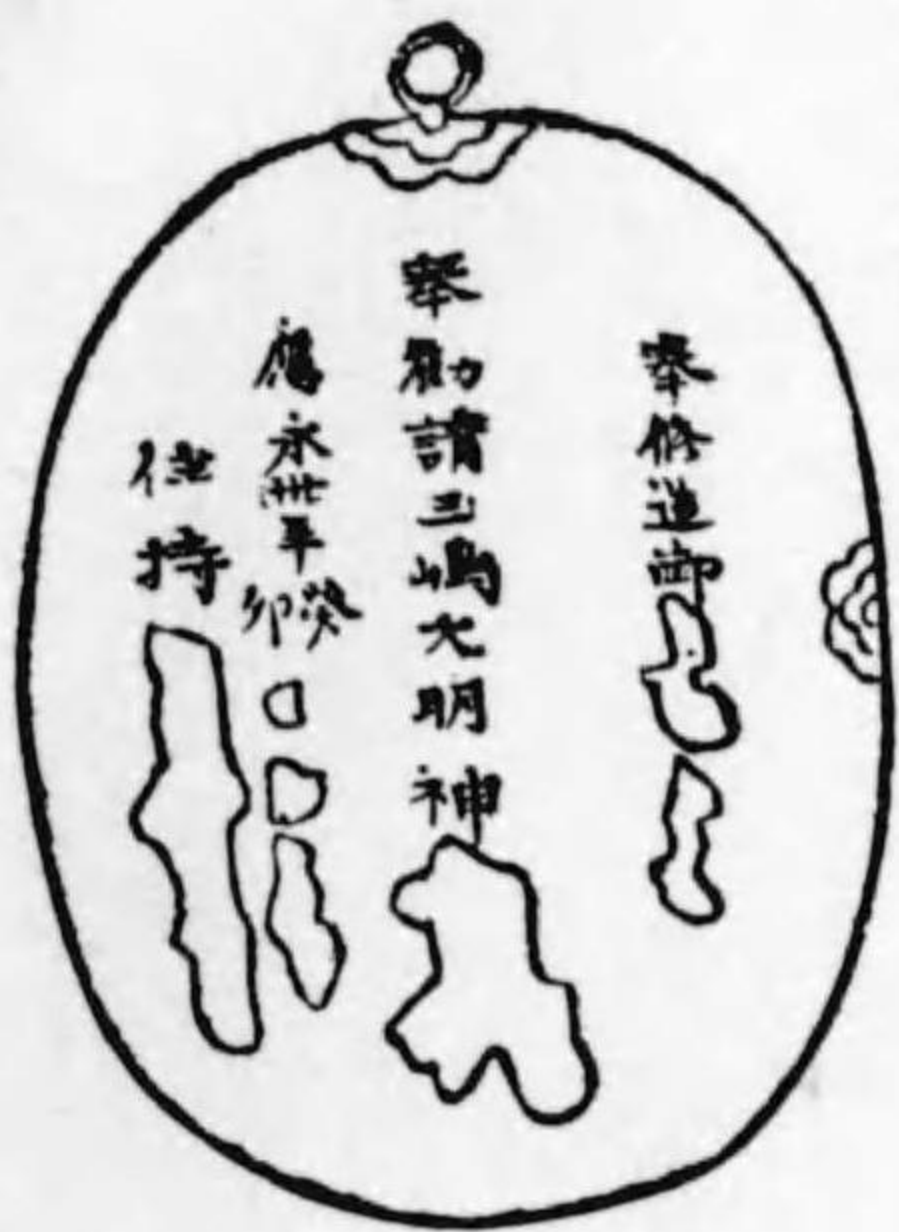 奉修造御
奉勧請三嶋大明神
應永卅年癸卯
住持